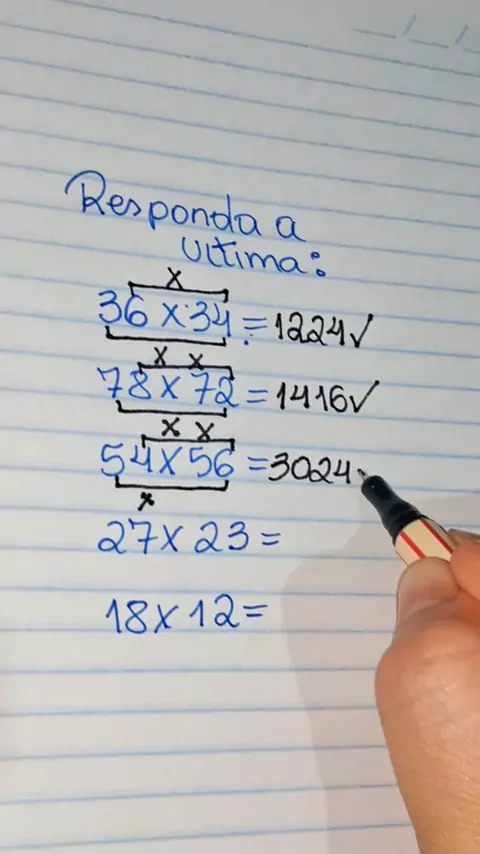 Responda a
ultima:
x
36 x 34 = 1224✓
x x
78 x 72 = 1416✓
x x
54 x 56 = 3024
x
27 x 23 =
18 x 12 =